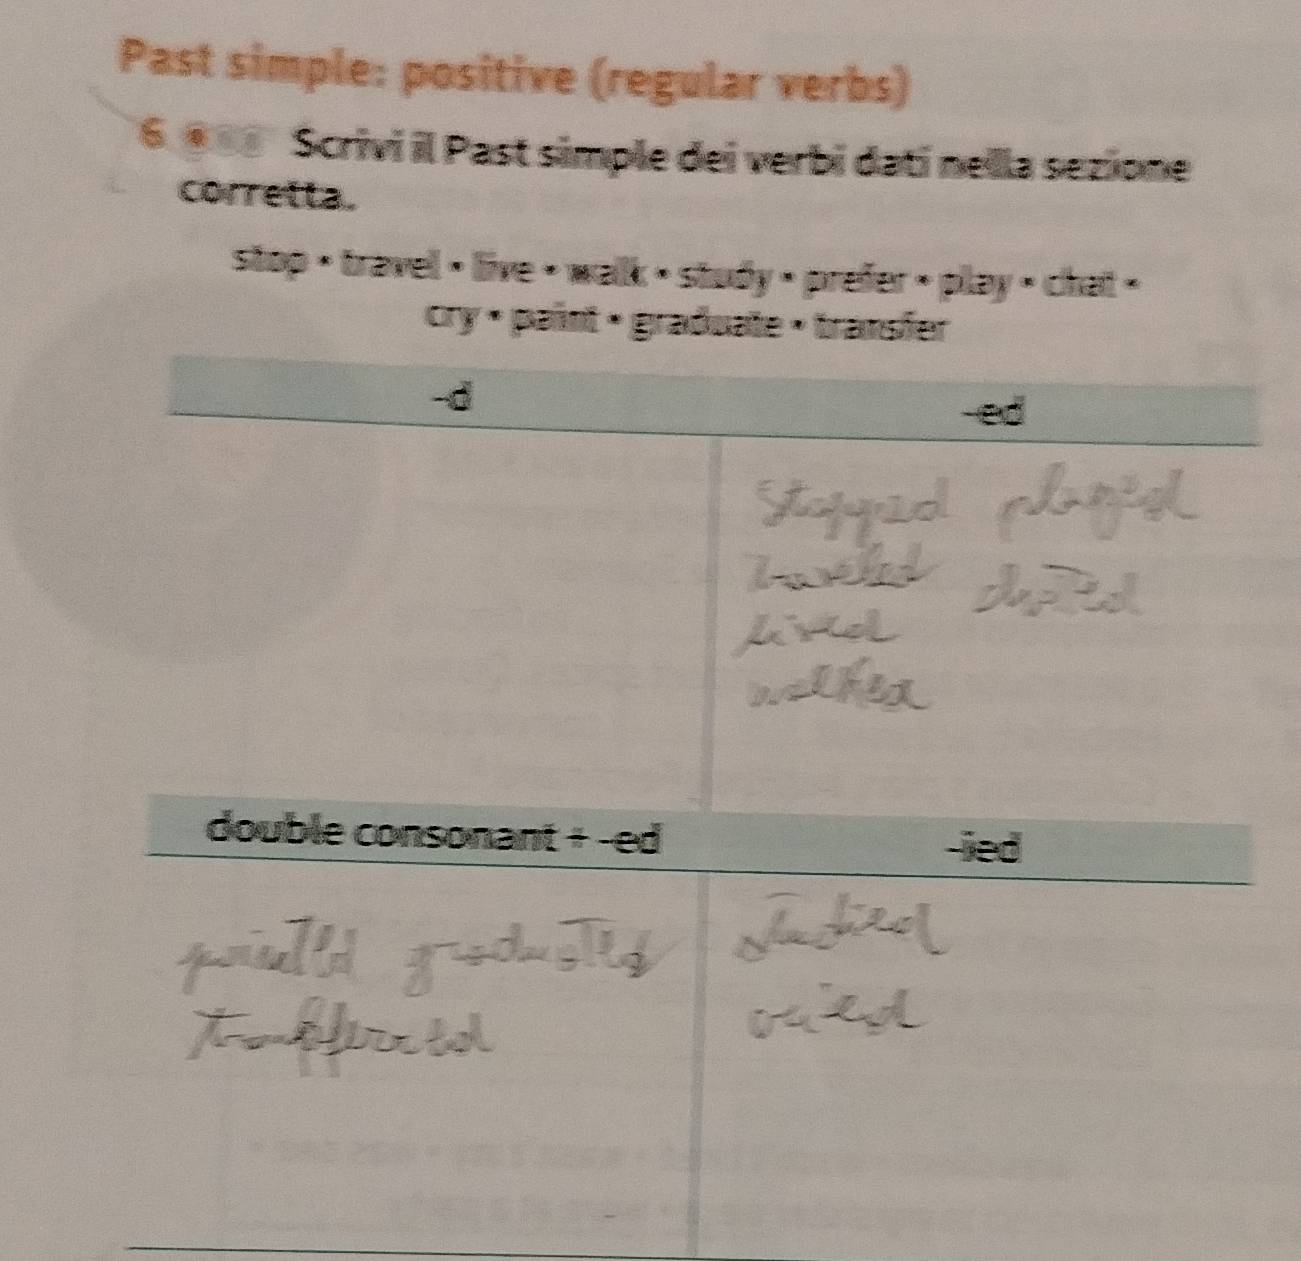 Past simple: positive (regular verbs)
6 Scrivi il Past simple dei verbi dati nella sezione
corretta.
stop • travel • live • walk • study • prefer • play • chat •
cry • paint • graduate • transfer
-d
-ed
stopped played
traveled chatted
lived
walked
double consonant + -ed
-ied
painted graduated
studied
cried